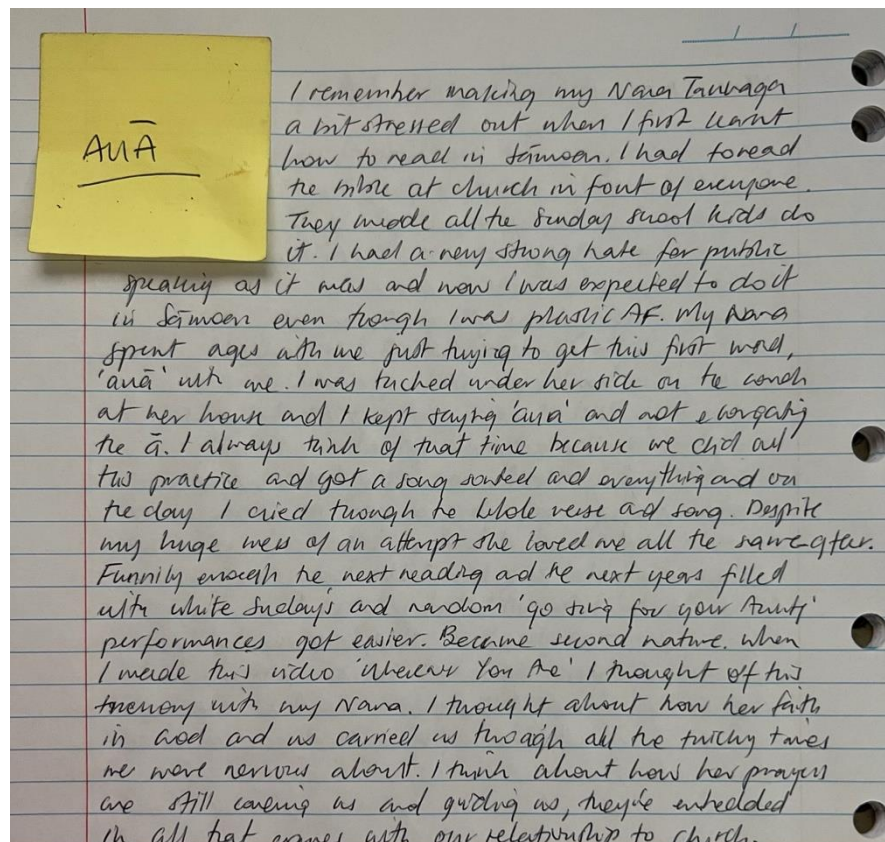 AUĀ
I remember making my Nana Taubaga
a bit stressed out when I first learnt
how to read in Sāmoan. I had to read
the bible at church in font of everyone.
They made all the Sunday school kids do
it. I had a very strong hate for public
speaking as it was and now I was expected to do it
in Sāmoan even though I was plastic AF. My Nana
spent ages with me just trying to get this first word,
'auā' with me. I was tucked under her side on the couch
at her house and I kept saying 'aua' and not elongating
the ā. I always think of that time because we did all
this practice and got a song sorted and everything and on
the day I cried through the whole verse and song. Despite
my huge mess of an attempt she loved me all the same after.
Funnily enough the next reading and the next years filled
with white Sundays and random 'go sing for your Aunty'
performances got easier. Became second nature. When
I made this video 'Wherever You Are' I thought of this
memory with my Nana. I thought about how her faith
in God and us carried us through all the tricky times
we were nervous about. I think about how her prayers
are still covering us and guiding us, they're embedded
in all that comes with our relationship to church.